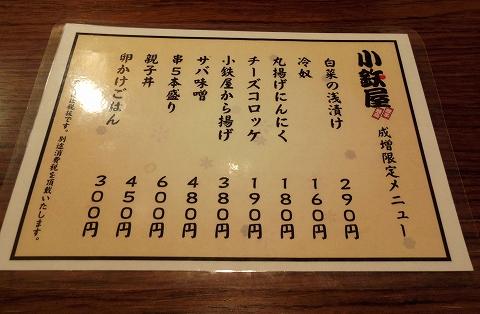 小鉄屋
成増限定メニュー
白菜の浅漬け 290円
冷奴 160円
丸揚げにんにく 180円
チーズコロッケ 190円
小鉄屋から揚げ 380円
サバ味噌 480円
串5本盛り 600円
親子丼 450円
卵かけごはん 300円
は税抜です。別途消費税を頂戴いたします。